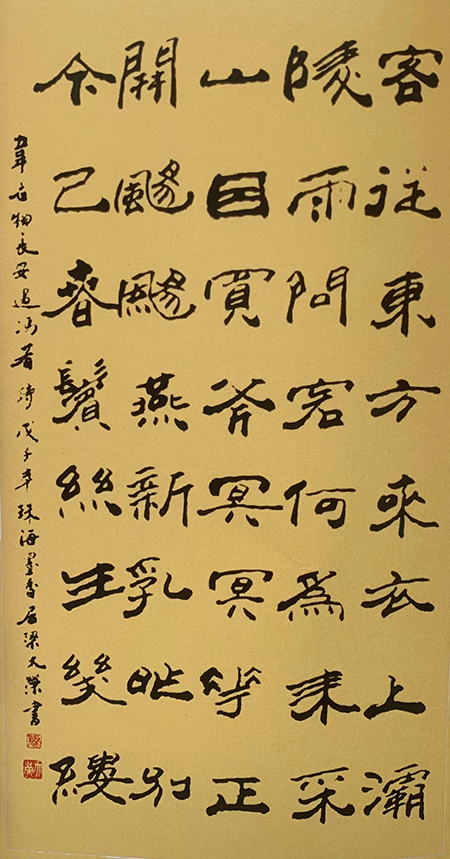 客從東方來衣上灞
陵雨問客何為來采
山因買斧冥冥花正
開颺颺燕新乳昨別
今已春鬢絲生幾縷
韋應物長安遇馮著詩戊子年珠海墨香居梁大榮書